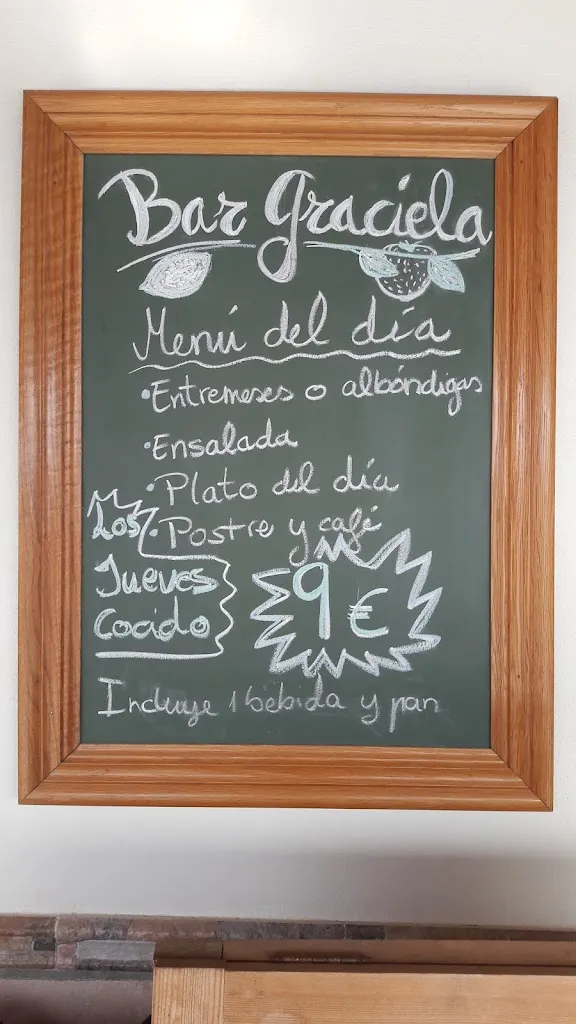 Bar Graciela
Menú del día
• Entremeses o albóndigas
• Ensalada
• Plato del día
• Postre y café
Los
Jueves
Cocido
9 €
Incluye 1 bebida y pan